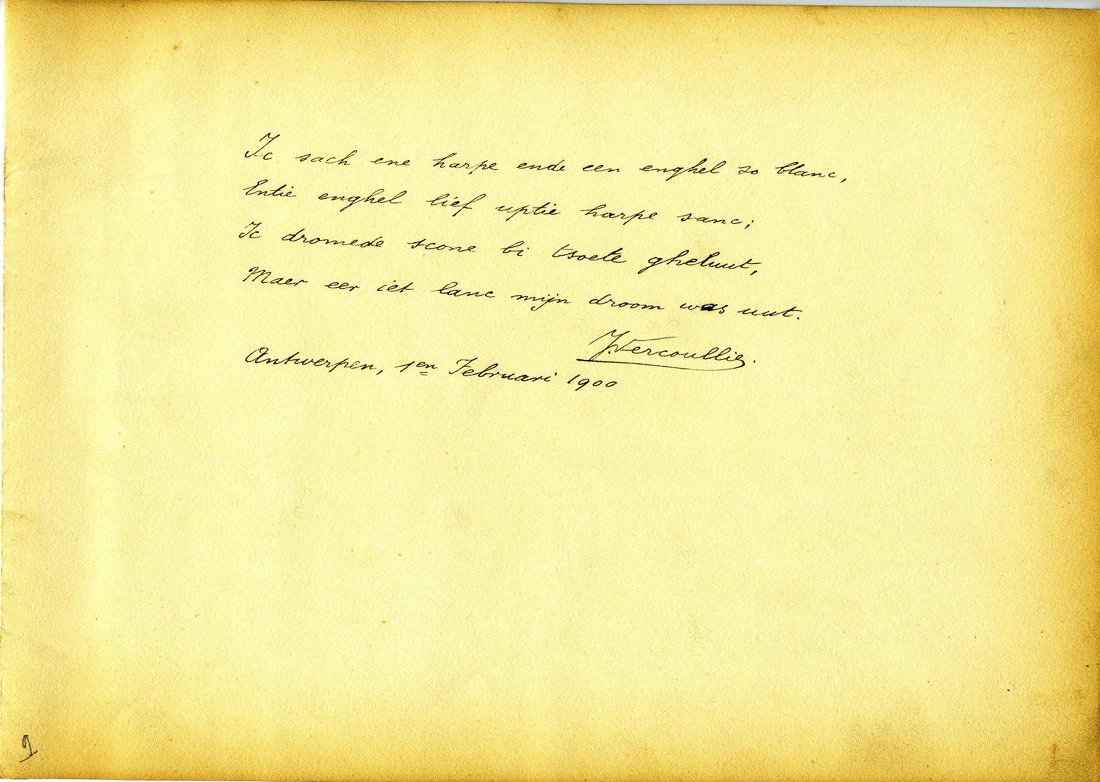 Ic sach ene harpe ende een enghel so blanc,
Entie enghel lief uptie harpe sanc;
Ic dromede scone bi tsoete gheluut,
Maer eer iet lanc mijn droom was uut.
J. Vercoullie.
Antwerpen, 1en Februari 1900